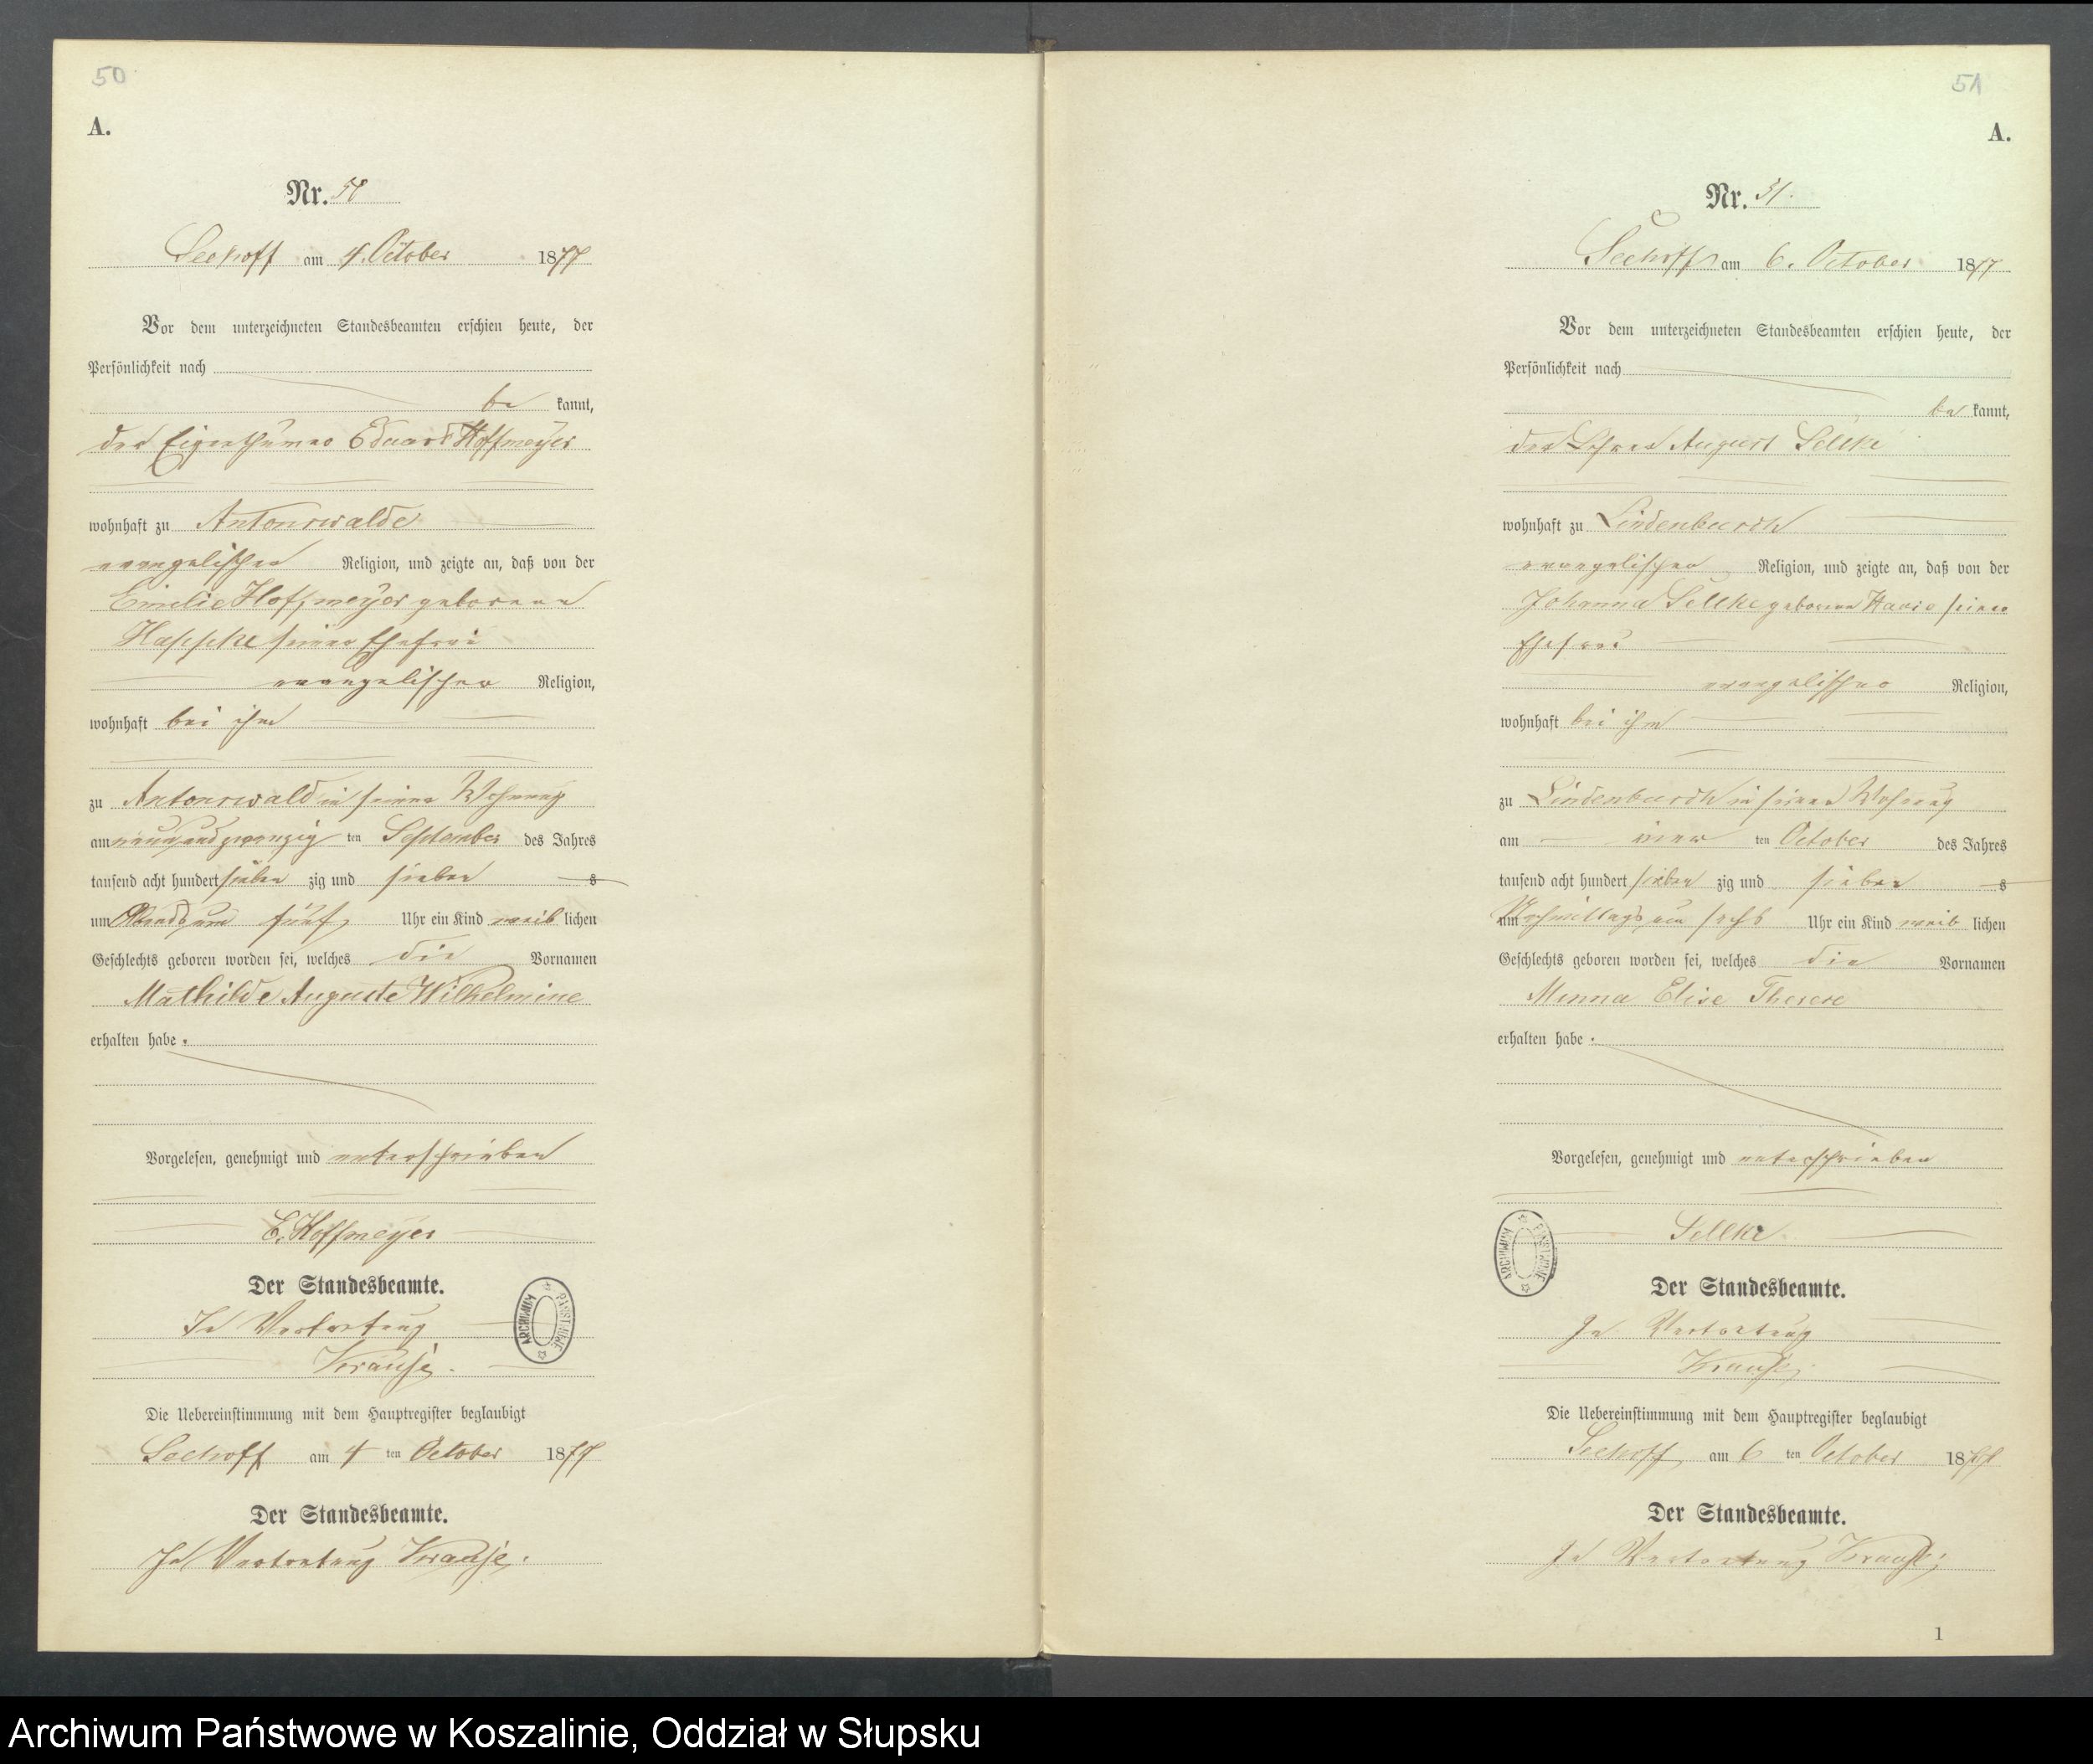 50
A.
Nr. 50
Seehoff am 4. October 1877
Vor dem unterzeichneten Standesbeamten erschien heute, der
Persönlichkeit nach
be kannt,
der Eigenthümer Eduard Hoffmeyer
wohnhaft zu Antonswalde
evangelischer Religion, und zeigte an, daß von der
Emilie Hoffmeyer geborene
seiner Ehefrau
evangelischer Religion,
wohnhaft bei ihm
zu Antonswald in seiner Wohnung
am neunundzwanzig ten September des Jahres
tausend acht hundert sieben zig und sieben s
um Abends um fünf Uhr ein Kind weib lichen
Geschlechts geboren worden sei, welches die Vornamen
Mathilde Auguste Wilhelmine
erhalten habe.
Vorgelesen, genehmigt und unterschrieben
E. Hoffmeyer
Der Standesbeamte.
In Vertretung
Krause.
ARCHIWUM PAŃSTWOWE
Die Uebereinstimmung mit dem Hauptregister beglaubigt
Seehoff am 4 ten October 1877
Der Standesbeamte.
In Vertretung Krause.
51
A.
Nr. 51.
Seehoff am 6. October 1877
Vor dem unterzeichneten Standesbeamten erschien heute, der
Persönlichkeit nach
be kannt,
der Lehrer August Sellke
wohnhaft zu Lindenbusch
evangelischer Religion, und zeigte an, daß von der
Johanna Sellke geborene seiner
Ehefrau
evangelischer Religion,
wohnhaft bei ihm
zu Lindenbusch in seiner Wohnung
am vier ten October des Jahres
tausend acht hundert sieben zig und sieben s
um Nachmittags um sechs Uhr ein Kind weib lichen
Geschlechts geboren worden sei, welches die Vornamen
Minna Elise Therese
erhalten habe.
Vorgelesen, genehmigt und unterschrieben
Sellke
ARCHIWUM PAŃSTWOWE
Der Standesbeamte.
In Vertretung
Krause.
Die Uebereinstimmung mit dem Hauptregister beglaubigt
Seehoff am 6 ten October 1877
Der Standesbeamte.
In Vertretung Krause.
1
Archiwum Państwowe w Koszalinie, Oddział w Słupsku